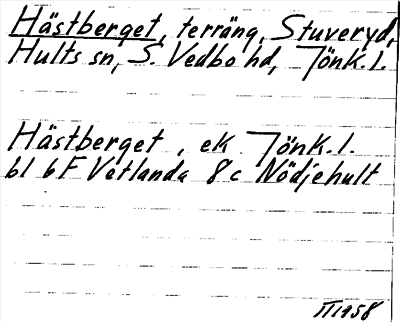 Hästberget, terräng, Stuveryd,
Hults sn, S. Vedbo hd, Jönk. l.
Hästberget, ek Jönk. l.
bl 6F Vetlanda 8c Nödjehult
II 1958